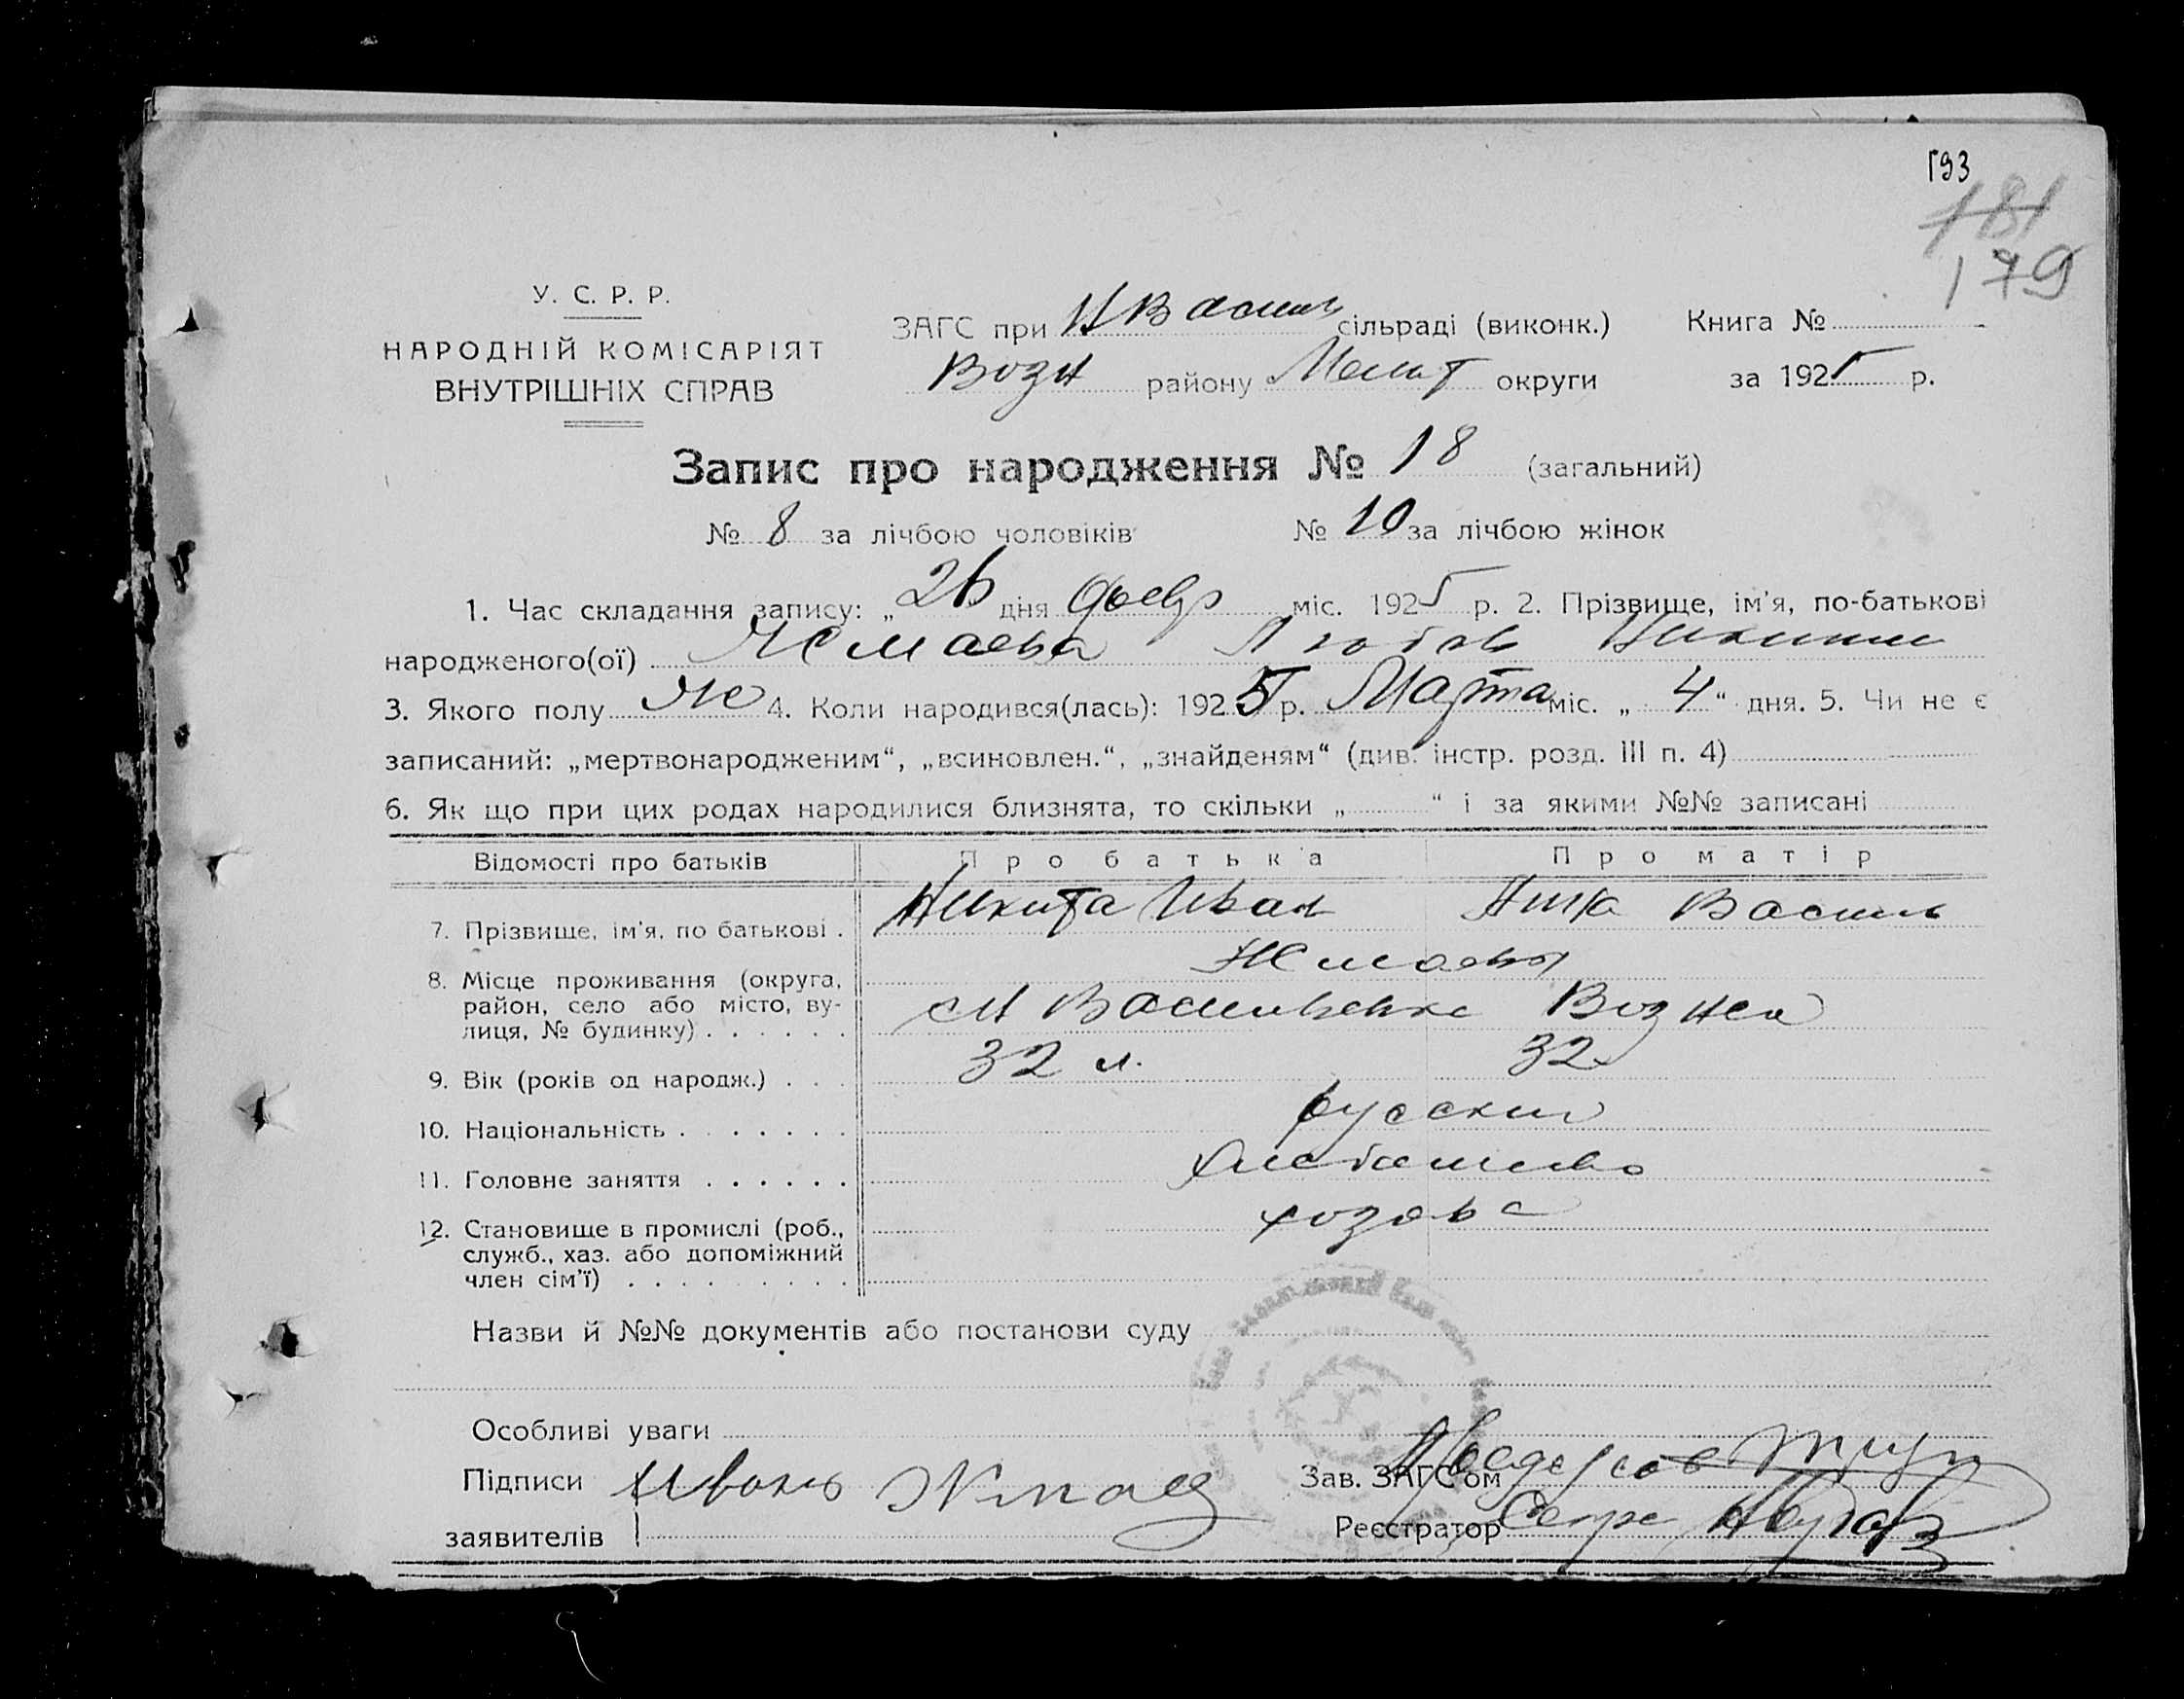 193
181
179
У. С. Р. Р.
НАРОДНІЙ КОМІСАРІЯТ
ВНУТРІШНІХ СПРАВ
ЗАГС при Н Васил сільраді (виконк.) Книга №
Возн району Мелит округи за 1925 р.
Запис про народження № 18 (загальний)
№ 8 за лічбою чоловіків № 10 за лічбою жінок
1. Час складання запису: „26 дня февр міс. 1925 р. 2. Прізвище, ім'я, по-батькові
народженого(ої) Жмаева Любов Никити
3. Якого полу Же 4. Коли народився(лась): 1925 р. Марта міс. „ 4 “ дня. 5. Чи не є
записаний: „мертвонародженим“, „всиновлен.“, „знайденям“ (див. інстр. розд. III п. 4)
6. Як що при цих родах народилися близнята, то скільки „ “ і за якими №№ записані
Відомості про батьків Про батька Про матір
7. Прізвище, ім'я, по батькові . Никита Иван Васил
Жмаевы
8. Місце проживання (округа,
район, село або місто, ву-
лиця, № будинку) . . . . . . Н Васильевка Возне
9. Вік (років од народж.) . . . 32 л. 32
10. Національність . . . . . . . русские
11. Головне заняття . . . . . . хлебопашество
12. Становище в промислі (роб.,
служб., хаз. або допоміжний
член сім'ї) . . . . . . . . . хозяева
Назви й №№ документів або постанови суду
Особливі уваги
Підписи Иванъ Жмаев Зав. ЗАГСом
заявителів Реєстратор Секре